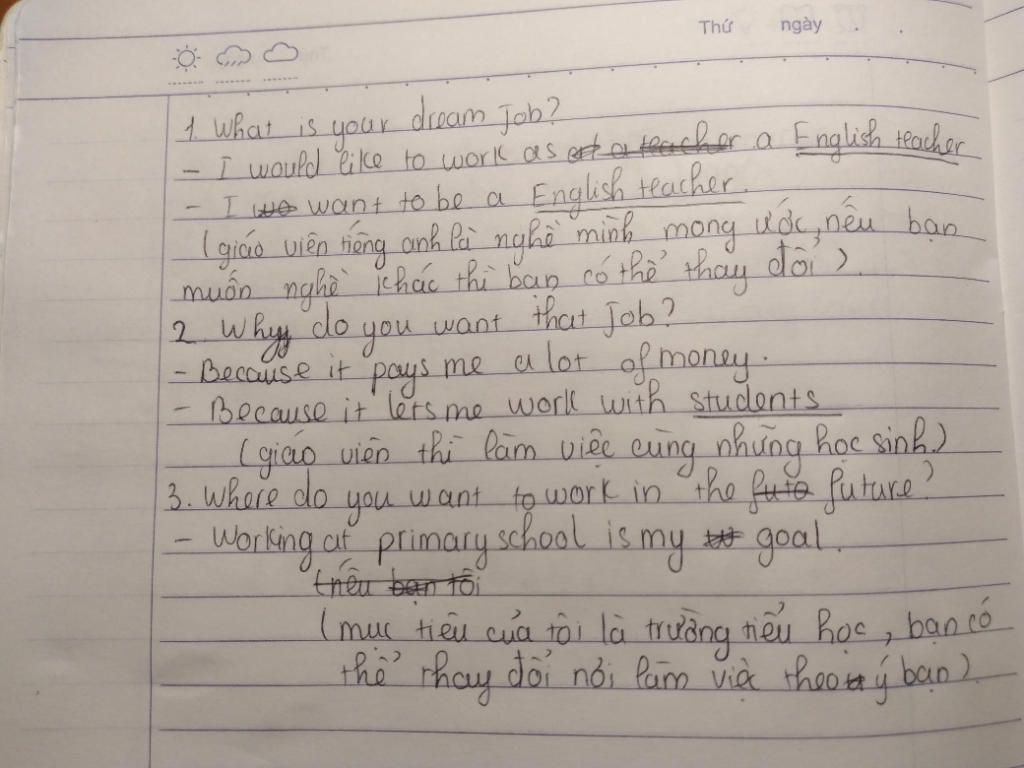 Thứ ngày . .
1. What is your dream job?
- I would like to work as a English teacher
- I want to be a English teacher.
(giáo viên tiếng anh là nghề mình mong ước, nếu bạn
muốn nghề khác thì bạn có thể thay đổi).
2. Why do you want that job?
- Because it pays me a lot of money.
- Because it lets me work with students
(giáo viên thì làm việc cùng những học sinh.)
3. Where do you want to work in the future?
- Working at primary school is my goal.
(nếu bạn tôi
(mục tiêu của tôi là trường tiểu học, bạn có
thể thay đổi nơi làm việc theo ý bạn).